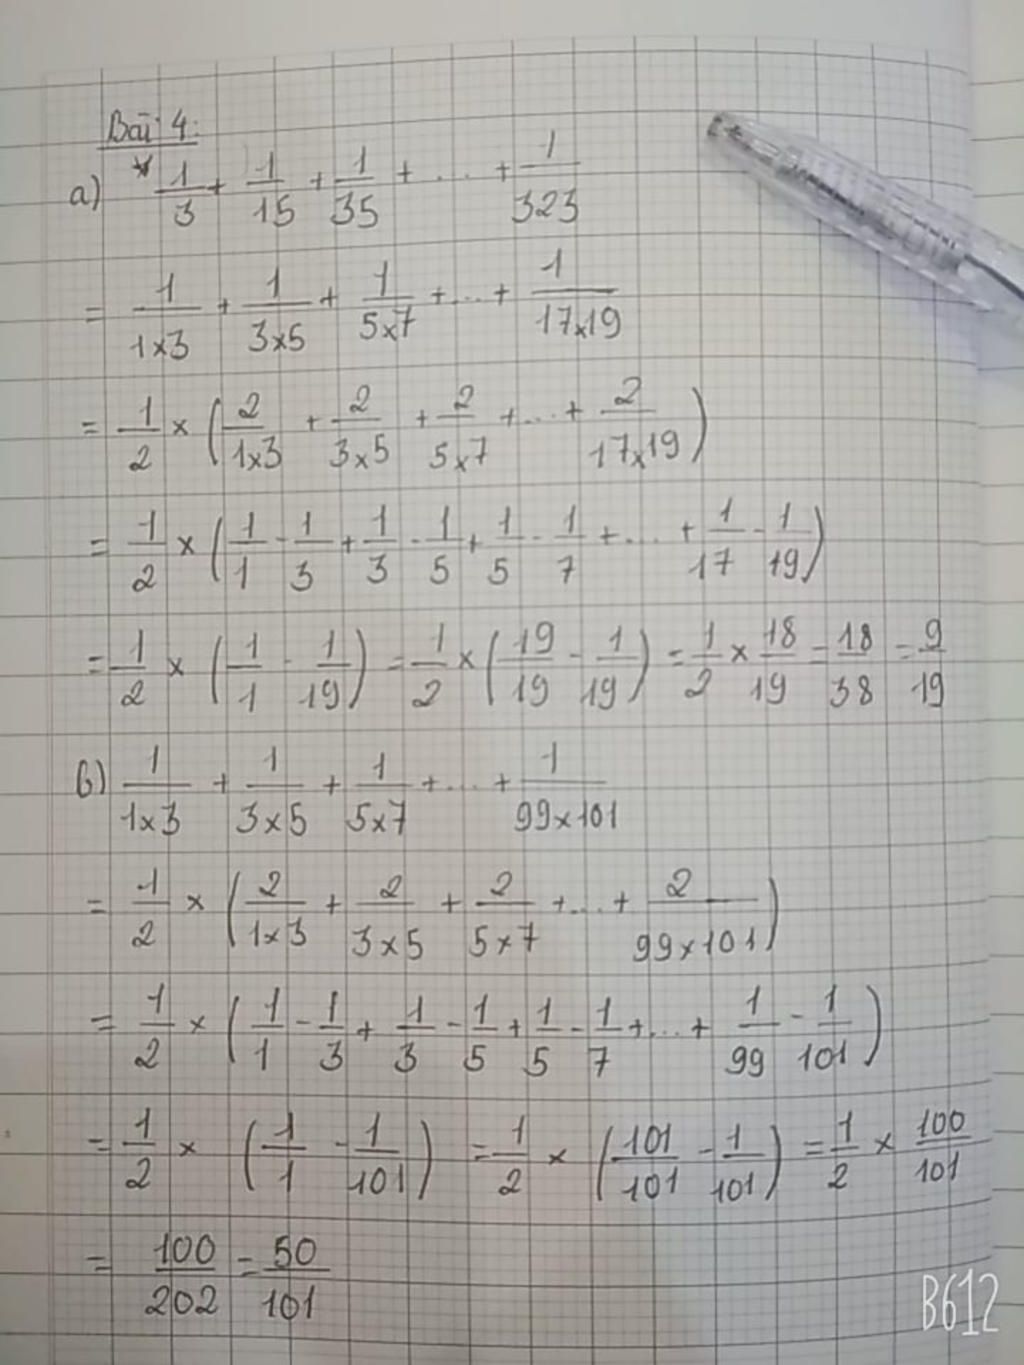 Bài 4:
a) * 1/3 + 1/15 + 1/35 + ... + 1/323
= 1/(1×3) + 1/(3×5) + 1/(5×7) + ... + 1/(17×19)
= 1/2 × (2/(1×3) + 2/(3×5) + 2/(5×7) + ... + 2/(17×19))
= 1/2 × (1/1 - 1/3 + 1/3 - 1/5 + 1/5 - 1/7 + ... + 1/17 - 1/19)
= 1/2 × (1/1 - 1/19) = 1/2 × (19/19 - 1/19) = 1/2 × 18/19 = 18/38 = 9/19
b) 1/(1×3) + 1/(3×5) + 1/(5×7) + ... + 1/(99×101)
= 1/2 × (2/(1×3) + 2/(3×5) + 2/(5×7) + ... + 2/(99×101))
= 1/2 × (1/1 - 1/3 + 1/3 - 1/5 + 1/5 - 1/7 + ... + 1/99 - 1/101)
= 1/2 × (1/1 - 1/101) = 1/2 × (101/101 - 1/101) = 1/2 × 100/101
= 100/202 = 50/101
B612